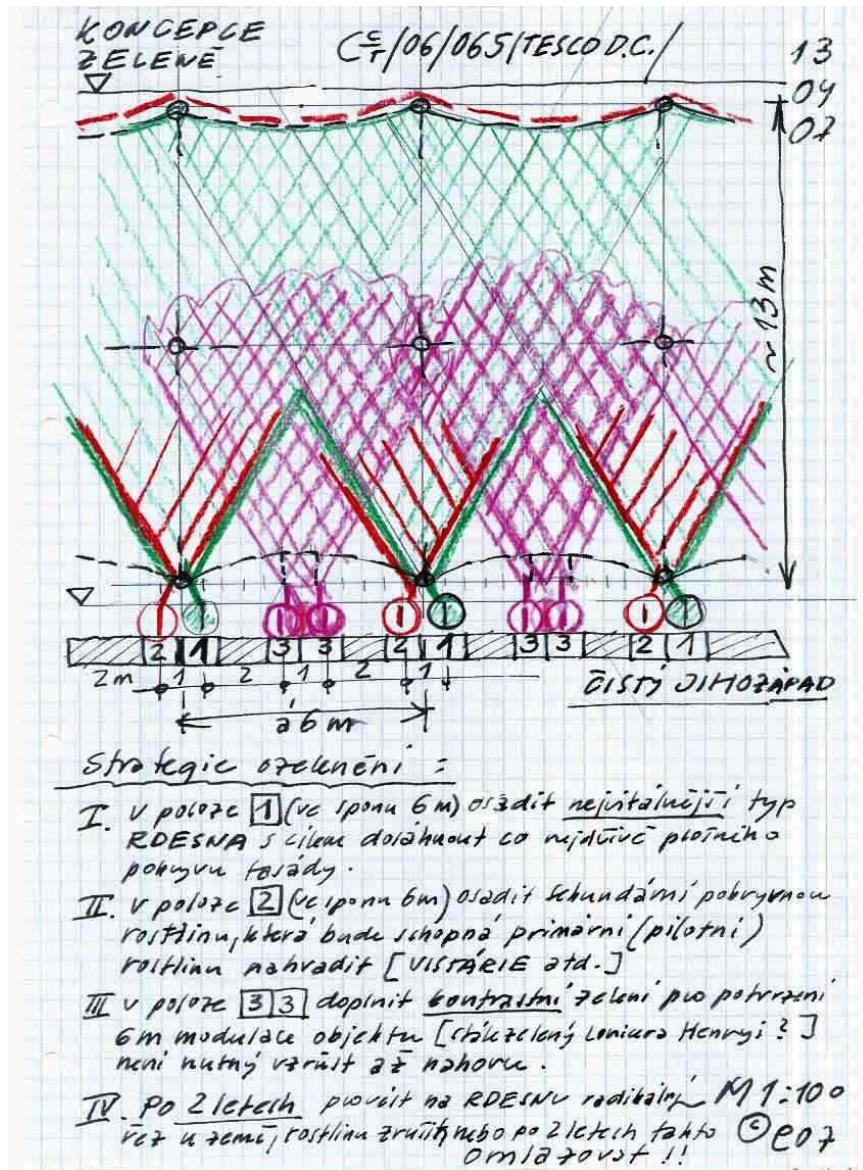 KONCEPCE
ZELENĚ
C C/T /06/065/TESCO D.C./
13
04
07
~ 13 m
1 1 1 1 1 1 1 1 1 1
2 1 3 3 2 1 3 3 2 1
2 m 1 2 1 2 1
á 6 m
ČISTÝ JIHOZÁPAD
Strategie ozelenění :
I. V poloze 1 (ve sponu 6 m) osadit nejvitálnější typ
RDESNA s cílem dosáhnout co nejdříve plošného
pokryvu fasády.
II. V poloze 2 (ve sponu 6m) osadit sekundární pokryvnou
rostlinu, která bude schopná primární (pilotní)
rostlinu nahradit [VISTÁRIE atd.]
III V poloze 3 3 doplnit kontrastní zelení pro potvrzení
6m modulace objektu [stálezelený Lonicera Henryi ?]
není nutný vzrůst až nahoru.
IV. Po 2 letech provést na RDESNU radikální M 1:100
řez u země, rostlinu zrušit, nebo po 2 letech takto © e07
omlazovat !!